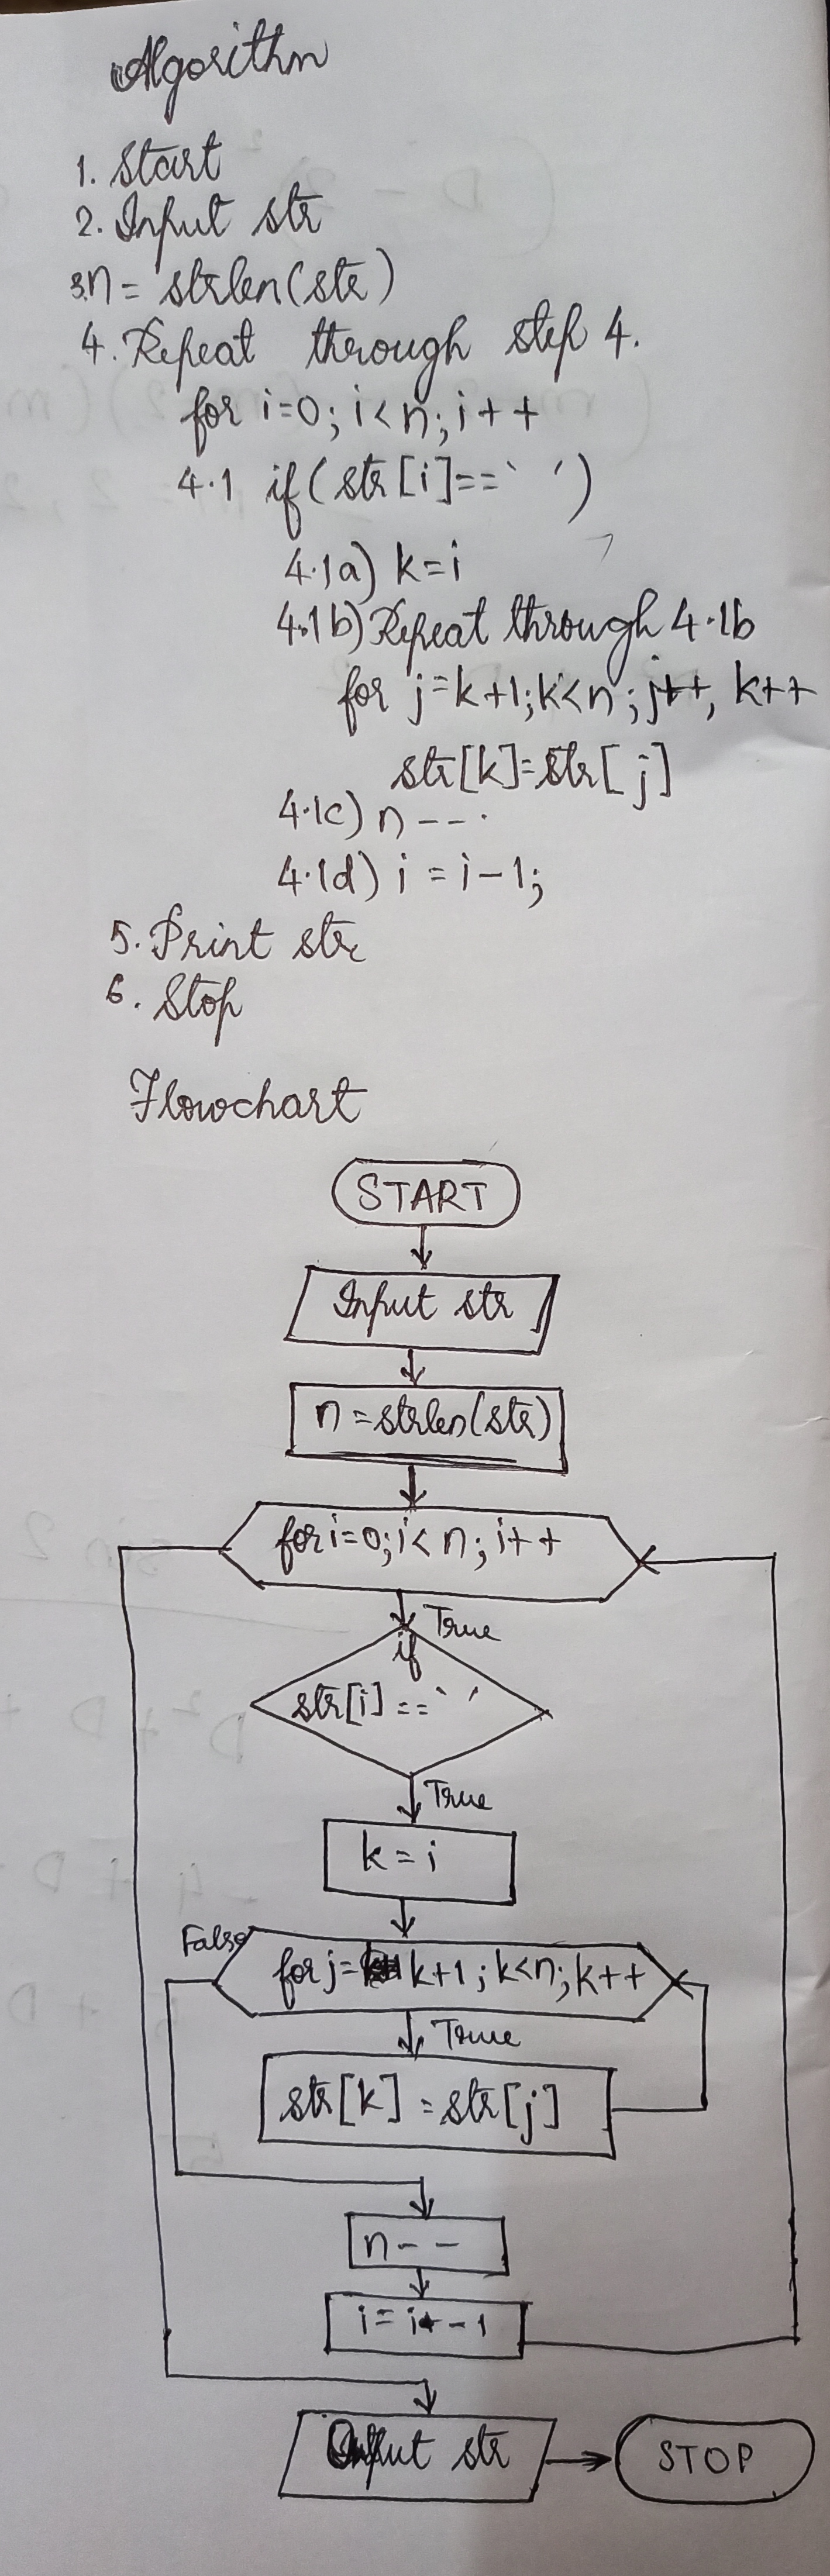 Algorithm
1. Start
2. Input str
3. n = strlen(str)
4. Repeat through step 4.
for i=0; i<n; i++
4.1 if(str[i]==` ')
4.1a) k=i
4.1b) Repeat through 4.1b
for j=k+1; k<n; j++, k++
str[k]=str[j]
4.1c) n--.
4.1d) i = i-1;
5. Print str
6. Stop
Flowchart
START
Input str
n=strlen(str)
for i=0; i<n; i++
True
if
str[i]==` '
True
k=i
False
for j= k+1; k<n; k++
True
str[k]=str[j]
n--
i=i-1
Output str
STOP